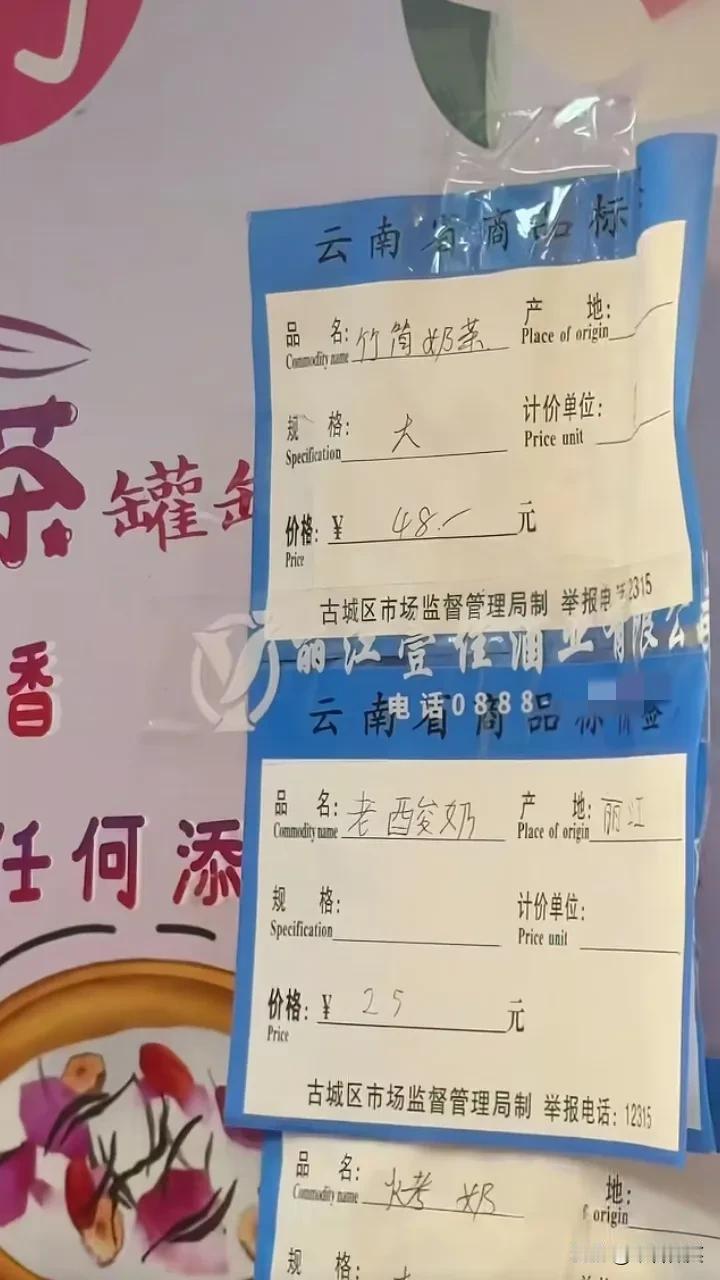 云南省商品标
品 名: 竹筒奶茶 产 地:
Commodity name Place of origin
规 格: 大 计价单位:
Specification Price unit
价格: ¥ 48.- 元
Price
古城区市场监督管理局制 举报电 2315
丽江壹佳酒业有限公司
电话0888
云南省商品标价签
品 名: 老酸奶 产 地: 丽江
Commodity name Place of origin
规 格: 计价单位:
Specification Price unit
价格: ¥ 25 元
Price
古城区市场监督管理局制 举报电话: 12315
品 名: 烤奶 地:
Commodity name origin
规 格:
茶 罐
香
任何添